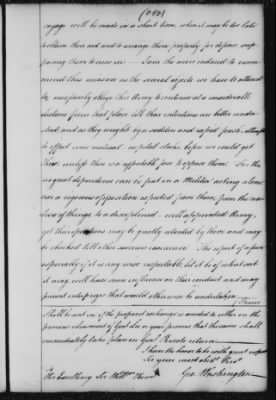 voyage will be made in a short time, when it may be too late
to obtain them and to arrange them properly for defence sup-
posing them to come in — I am the more induced to recom-
mend this measure as the several objects we have to attend
to, necessarily oblige this Army to continue at a considerable
distance from that place till their intentions are better under-
stood; and as they might by a sudden and rapid push, attempt
to effect some material stroke before we could get
there unless there is a respectable force to oppose them. For tho
no great dependence can be put on a Militia acting alone
nor a vigorous opposition expected from them, from the na-
tive of things to a disciplined well appointed Army,
yet their operations may be greatly retarded by them and may
be checked till other succour can come. The report of a force
especially if it is any wise respectable, let it be of what sort
it may, will have some influence on their conduct and may
prevent enterprizes that would otherwise be undertaken
shall be sent in if the proposed exchange is acceded to either on the
previous releasement of Genl Lee or your promise that the same shall
immediately take place on Genl Prescots return
I have the honor to be with great respect
Sir your most obedt Servt
His Excellency Sir Willm Howe Go: Washington